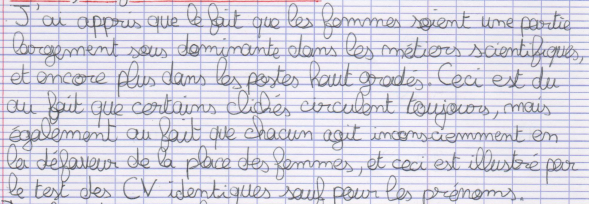 J'ai appris que le fait que les femmes soient une partie
largement sous dominante dans les métiers scientifiques,
et encore plus dans les postes haut gradés. Ceci est du
au fait que certains clichés circulent toujours, mais
également au fait que chacun agit inconsciemment en
la défaveur de la place des femmes, et ceci est illustré par
le test des CV identiques sauf pour les prénoms.